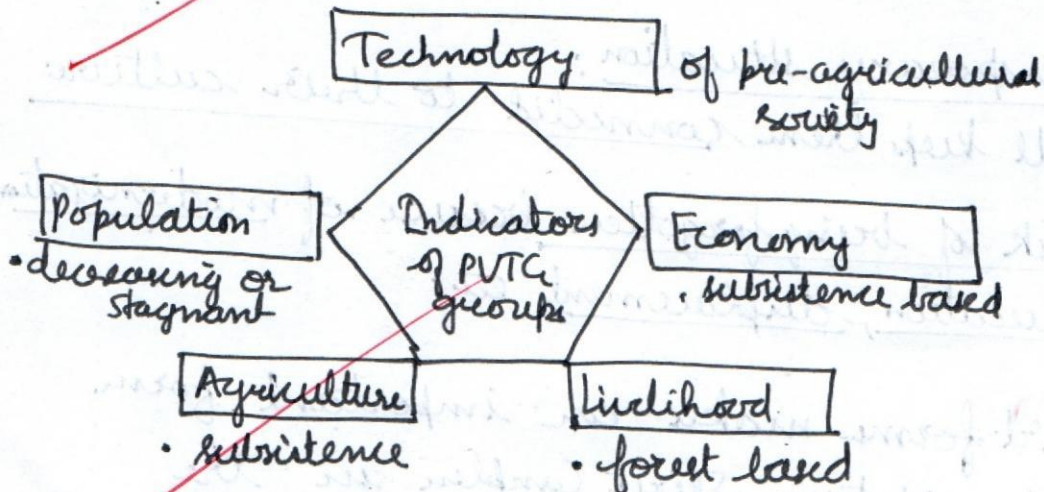 Technology
of pre-agricultural
society
Population
• decreasing or
stagnant
Indicators
of PVTG
groups
Economy
• subsistence based
Agriculture
• subsistence
Livlihood
• forest based